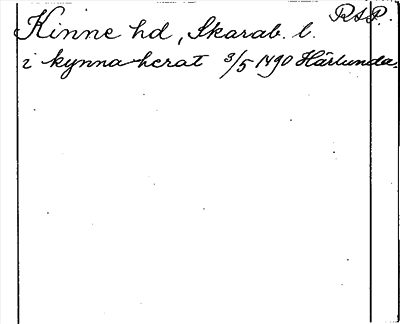 RAP.
Kinne hd, Skarab. l.
i kynna herat 3/5 1490 Härlunda.